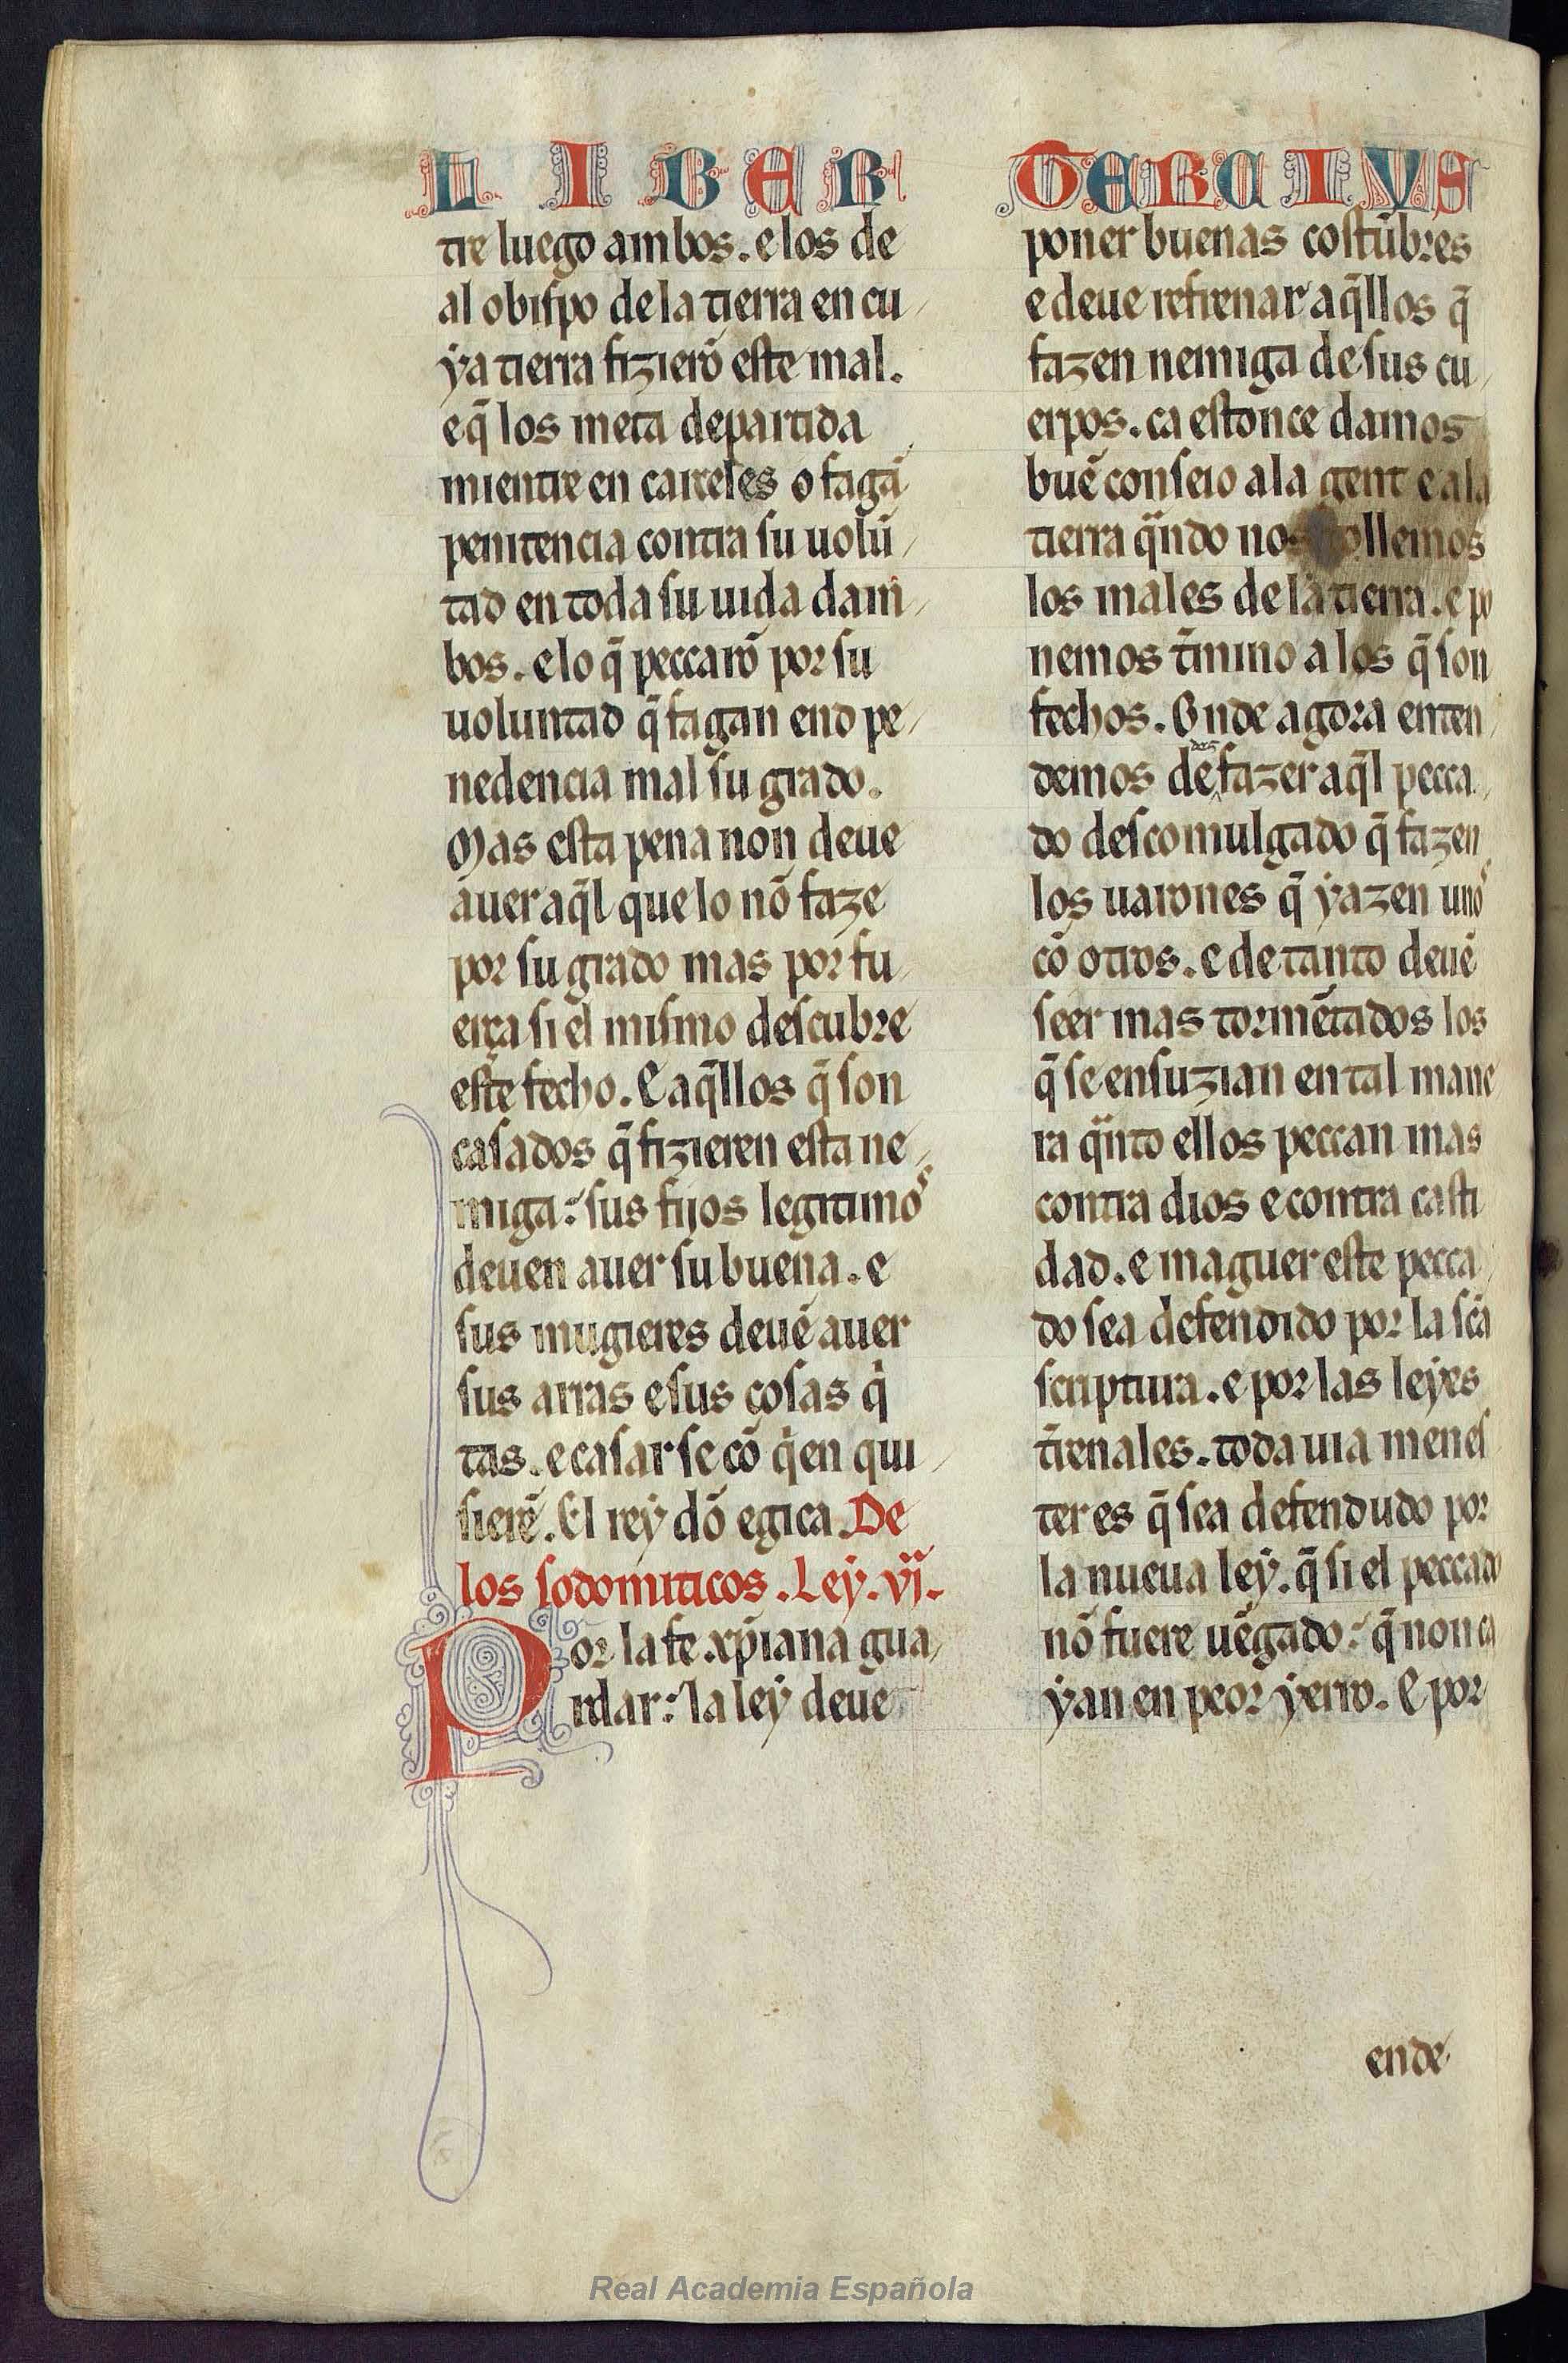 LIBER TERCIUS
tre luego ambos. e los de
al obispo de la tierra en cu
ya tierra fizierõ este mal.
e q̃ los meta departida
mientre en carceles o fagã
penitencia contra su uolũ
tad en toda su uida dam
bos. e lo q̃ peccarõ por su
uoluntad q̃ fagan end pe
nedencia mal su grado.
Mas esta pena non deue
auer aq̃l que lo nõ faze
por su grado mas por fu
erça si el mismo descubre
este fecho. E aq̃llos q̃ son
casados q̃ fizieren esta ne
miga: sus fijos legitimos
deuen auer su buena. e
sus mugieres deuẽ auer
sus arras e sus cosas q̃
tas. e casar se cõ q̃en qui
sierẽ. El rey dõ egica. De
los sodomiticos. Ley. vj.
Por la fe xp̃iana gua
rdar: la ley deue
poner buenas costũbres
e deue refrenar aq̃llos q̃
fazen nemiga de sus cu
erpos. ca estonce damos
buẽ conseio a la gent e a la
tierra q̃ndo nos tollemos
los males de la tierra. e po
nemos t̃mino a los q̃ son
fechos. Onde agora enten
demos de fazer aq̃l pecca
do descomulgado q̃ fazen
los uarones q̃ yazen unos
cõ otros. e de tanto deuẽ
seer mas tormẽtados los
q̃ se ensuzian en tal mane
ra q̃nto ellos peccan mas
contra dios e contra casti
dad. e maguer este pecca
do sea defendido por la sc̃a
scriptura. e por las leyes
t̃renales. toda uia menes
ter es q̃ sea defendudo por
la nueua ley. q̃ si el peccado
nõ fuere uẽgado: q̃ non ca
yan en peor yerro. E por
ende
Real Academia Española